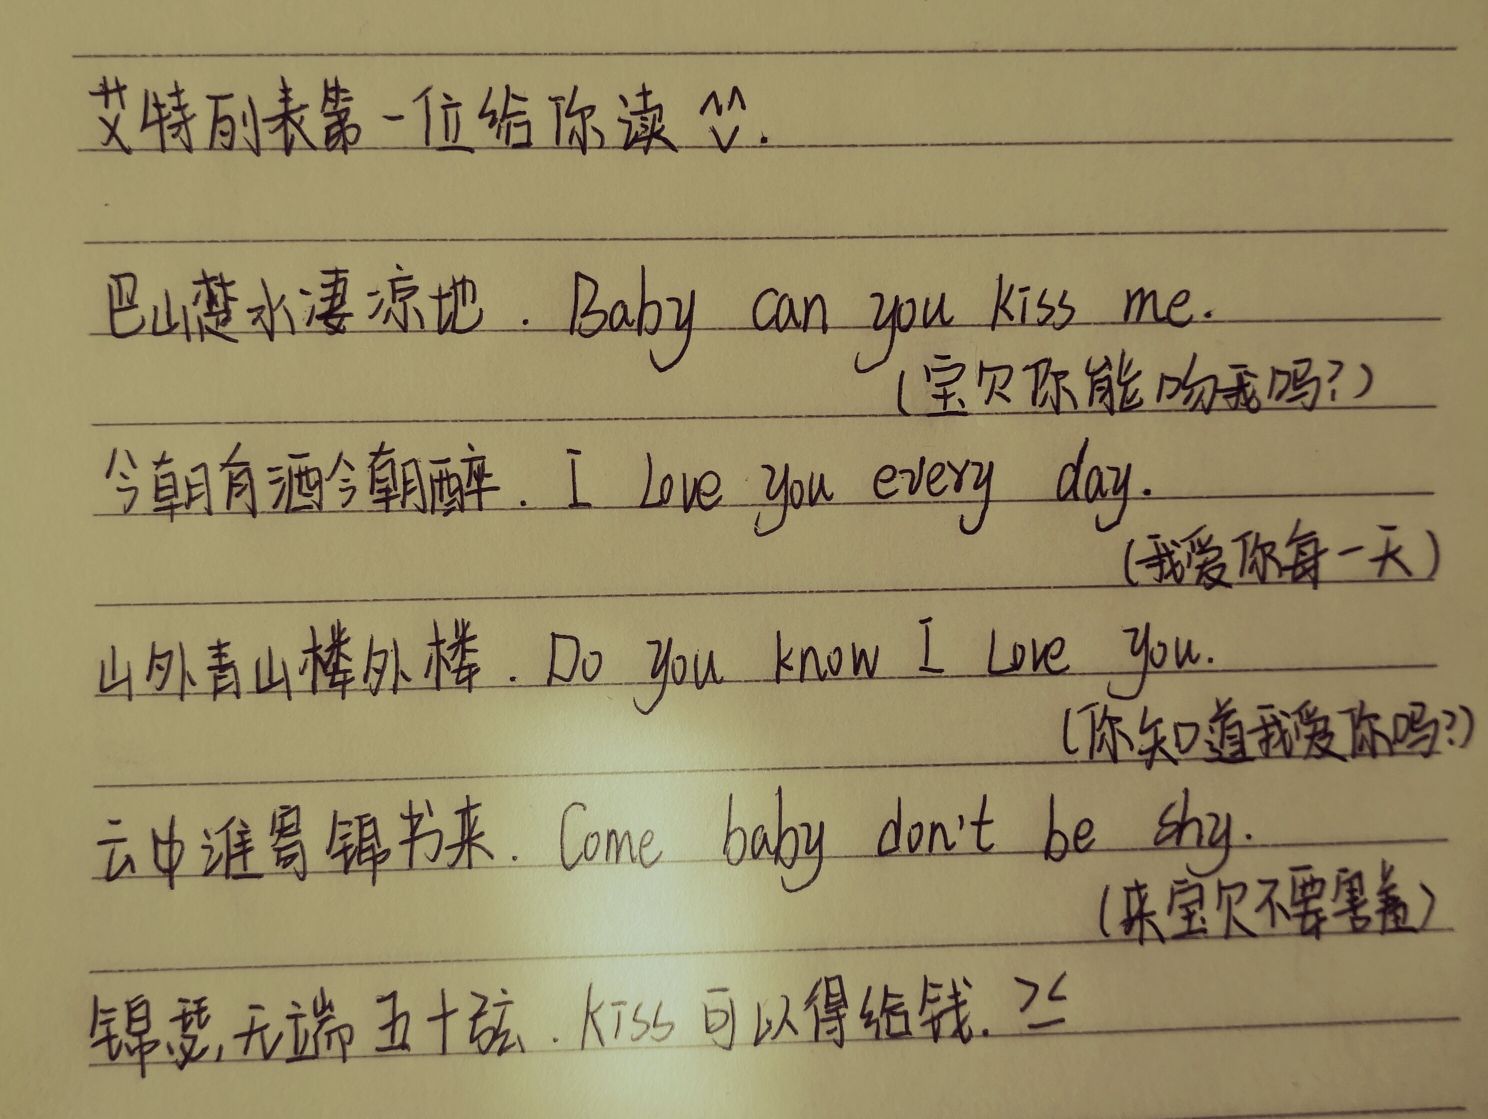 艾特列表第一位给你读^^.
巴山楚水凄凉地. Baby can you kiss me.
(宝贝你能吻我吗?)
今朝有酒今朝醉. I Love you every day.
(我爱你每一天)
山外青山楼外楼. Do you know I Love you.
(你知道我爱你吗?)
云中谁寄锦书来. Come baby don't be shy.
(来宝贝不要害羞)
锦瑟,无端五十弦. kiss可以得给钱. ><